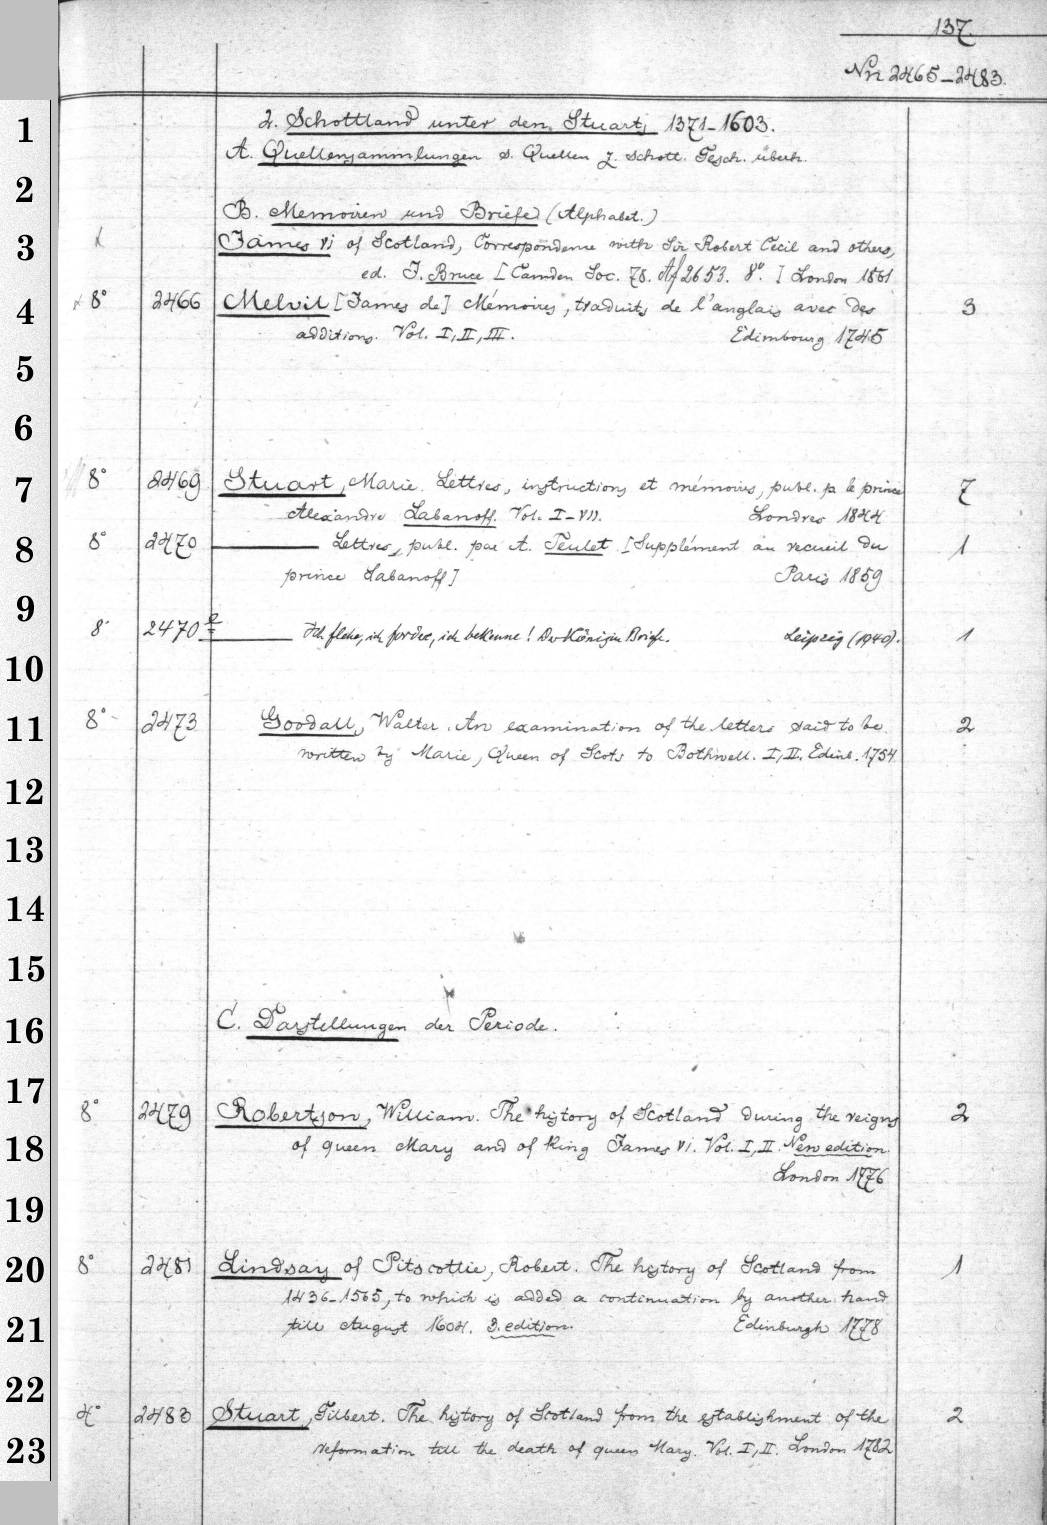 137.
Nr. 2465-2483.
1
2. Schottland unter den Stuarts 1371-1603.
A. Quellensammlungen s. Quellen z. schott. Gesch. überh.
2
B. Memoiren und Briefe (Alphabet.)
3 James VI of Scotland, Correspondence with Sir Robert Cecil and others,
ed. J. Bruce [Camden Soc. 78. Af 2653. 8°.] London 1861
4 x 8° 2466 Melvil [James de] Mémoires, traduits de l'anglais avec des 3
additions. Vol. I, II, III. Edimbourg 1745
5
6
7 8° 2469 Stuart, Marie. Lettres, instructions et mémoires, publ. p. le prince 7
Alexandre Labanoff. Vol. I-VII. Londres 1844
8 8° 2470 Lettres, publ. par A. Teulet [Supplément au recueil du 1
prince Labanoff] Paris 1859
9
8° 2470 a Ich flehe, ich fordre, ich bekenne! Der Königin Briefe. Leipzig (1940). 1
10
11 8° 2473 Goodall, Walter. An examination of the letters said to be 2
written by Marie, Queen of Scots to Bothwell. I, II. Edinb. 1754
12
13
14
15
16 C. Darstellungen der Periode.
17
8° 2479 Robertson, William. The history of Scotland during the reigns 2
18 of queen Mary and of King James VI. Vol. I, II. New edition.
London 1776
19
20 8° 2481 Lindsay of Pitscottie, Robert. The history of Scotland from 1
1436-1565, to which is added a continuation by another hand
21 till August 1604. 3. edition. Edinburgh 1778
22
4° 2483 Stuart, Gilbert. The history of Scotland from the establishment of the 2
23 reformation till the death of queen Mary. Vol. I, II. London 1782